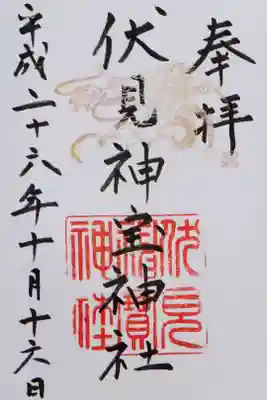 奉拝
伏見神宝神社
伏見
神寶
神社
平成二十六年十月十六日